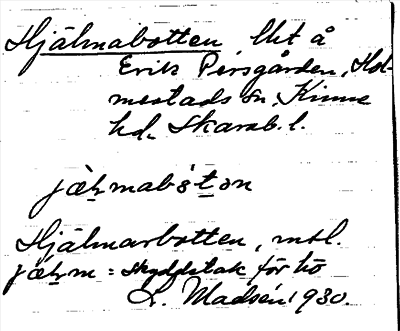 Hjälmabotten, lht å
Erik Persgården, Hol-
mestads sn, Kinne
hd. Skarab. l.
jàḷmabòt̲ən
Hjälmarbotten, mtl.
jäḷm = skyddstak för hö
L. Madsén 1930.